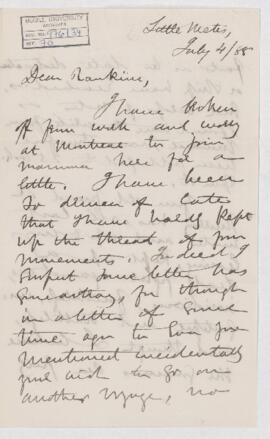 McGILL UNIVERSITY
ARCHIVES
ACC. NO. 1761/34
REF. 70
Little Metis,
July 4/88
Dear Rankine,
I have broken
off from work and
at Montreal to join
mamma here for a
little. I have been
so of late
that I have hardly kept
up the thread of your
movements. Indeed I
suspect some letter has
, for though
in a letter of some
time ago to you
mentioned incidentally
your wish to go on
another voyage, no